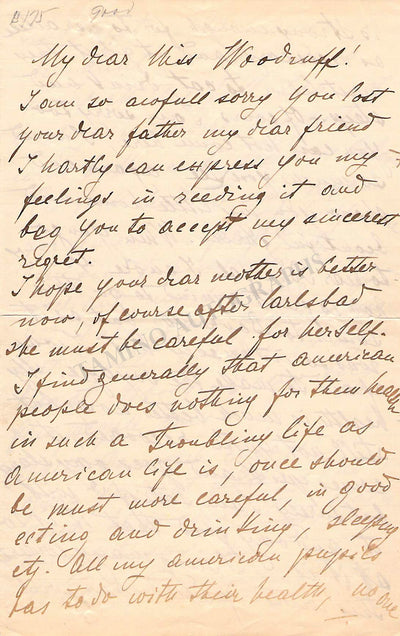 $175 good
My dear Miss Woodruff!
I am so awfull sorry you lost
your dear father my dear friend
I hartly can express you my
feelings in reeding it and
beg you to accept my sincerest
regret.
I hope your dear mother is better
now, of course after Carlsbad
she must be careful for herself.
I find generally that american
people does nothing for them health
in such a troubling life as
american life is, once should
be must more careful, in good
eeting and drinking, sleeping
etz. All my american pupils
has to do with their health, no one